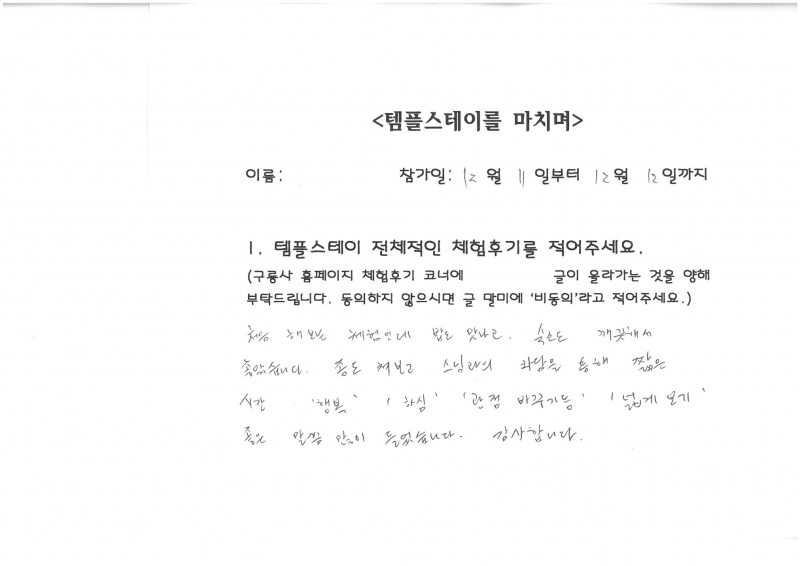 <템플스테이를 마치며>
이름: 참가일: 12 월 11 일부터 12월 12 일까지
1. 템플스테이 전체적인 체험후기를 적어주세요.
(구룡사 홈페이지 체험후기 코너에 글이 올라가는 것을 양해
부탁드립니다. 동의하지 않으시면 글 말미에 '비동의'라고 적어주세요.)
처음 해보는 체험인데 밥도 맛나고. 숙소도 깨끗해서
좋았습니다. 종도 쳐보고 스님과의 차담을 통해 짧은
시간 '행복' '하심' '관점 바꾸기등' '넓게 보기'
좋은 말씀 많이 들었습니다. 감사합니다.